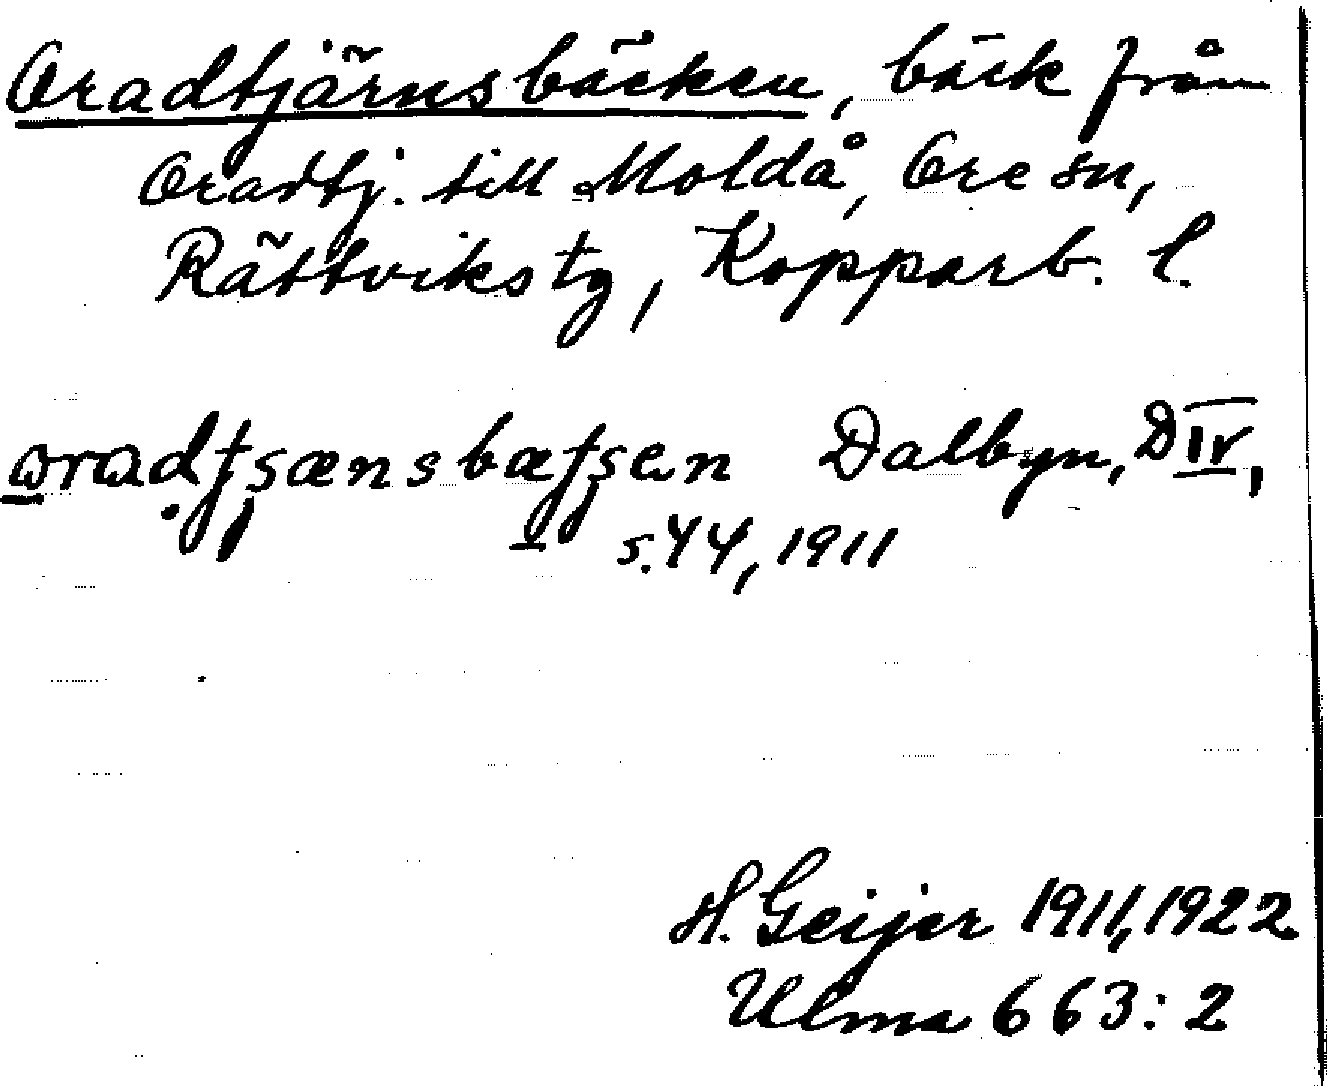 Oradtjärnsbäcken, bäck från
Oradtj. till Moldå, Ore sn,
Rättviks tg, Kopparb. l.
Dalbyn, D IV,
s. 44, 1911
H. Geijer 1911, 1922
Ulma 663:2